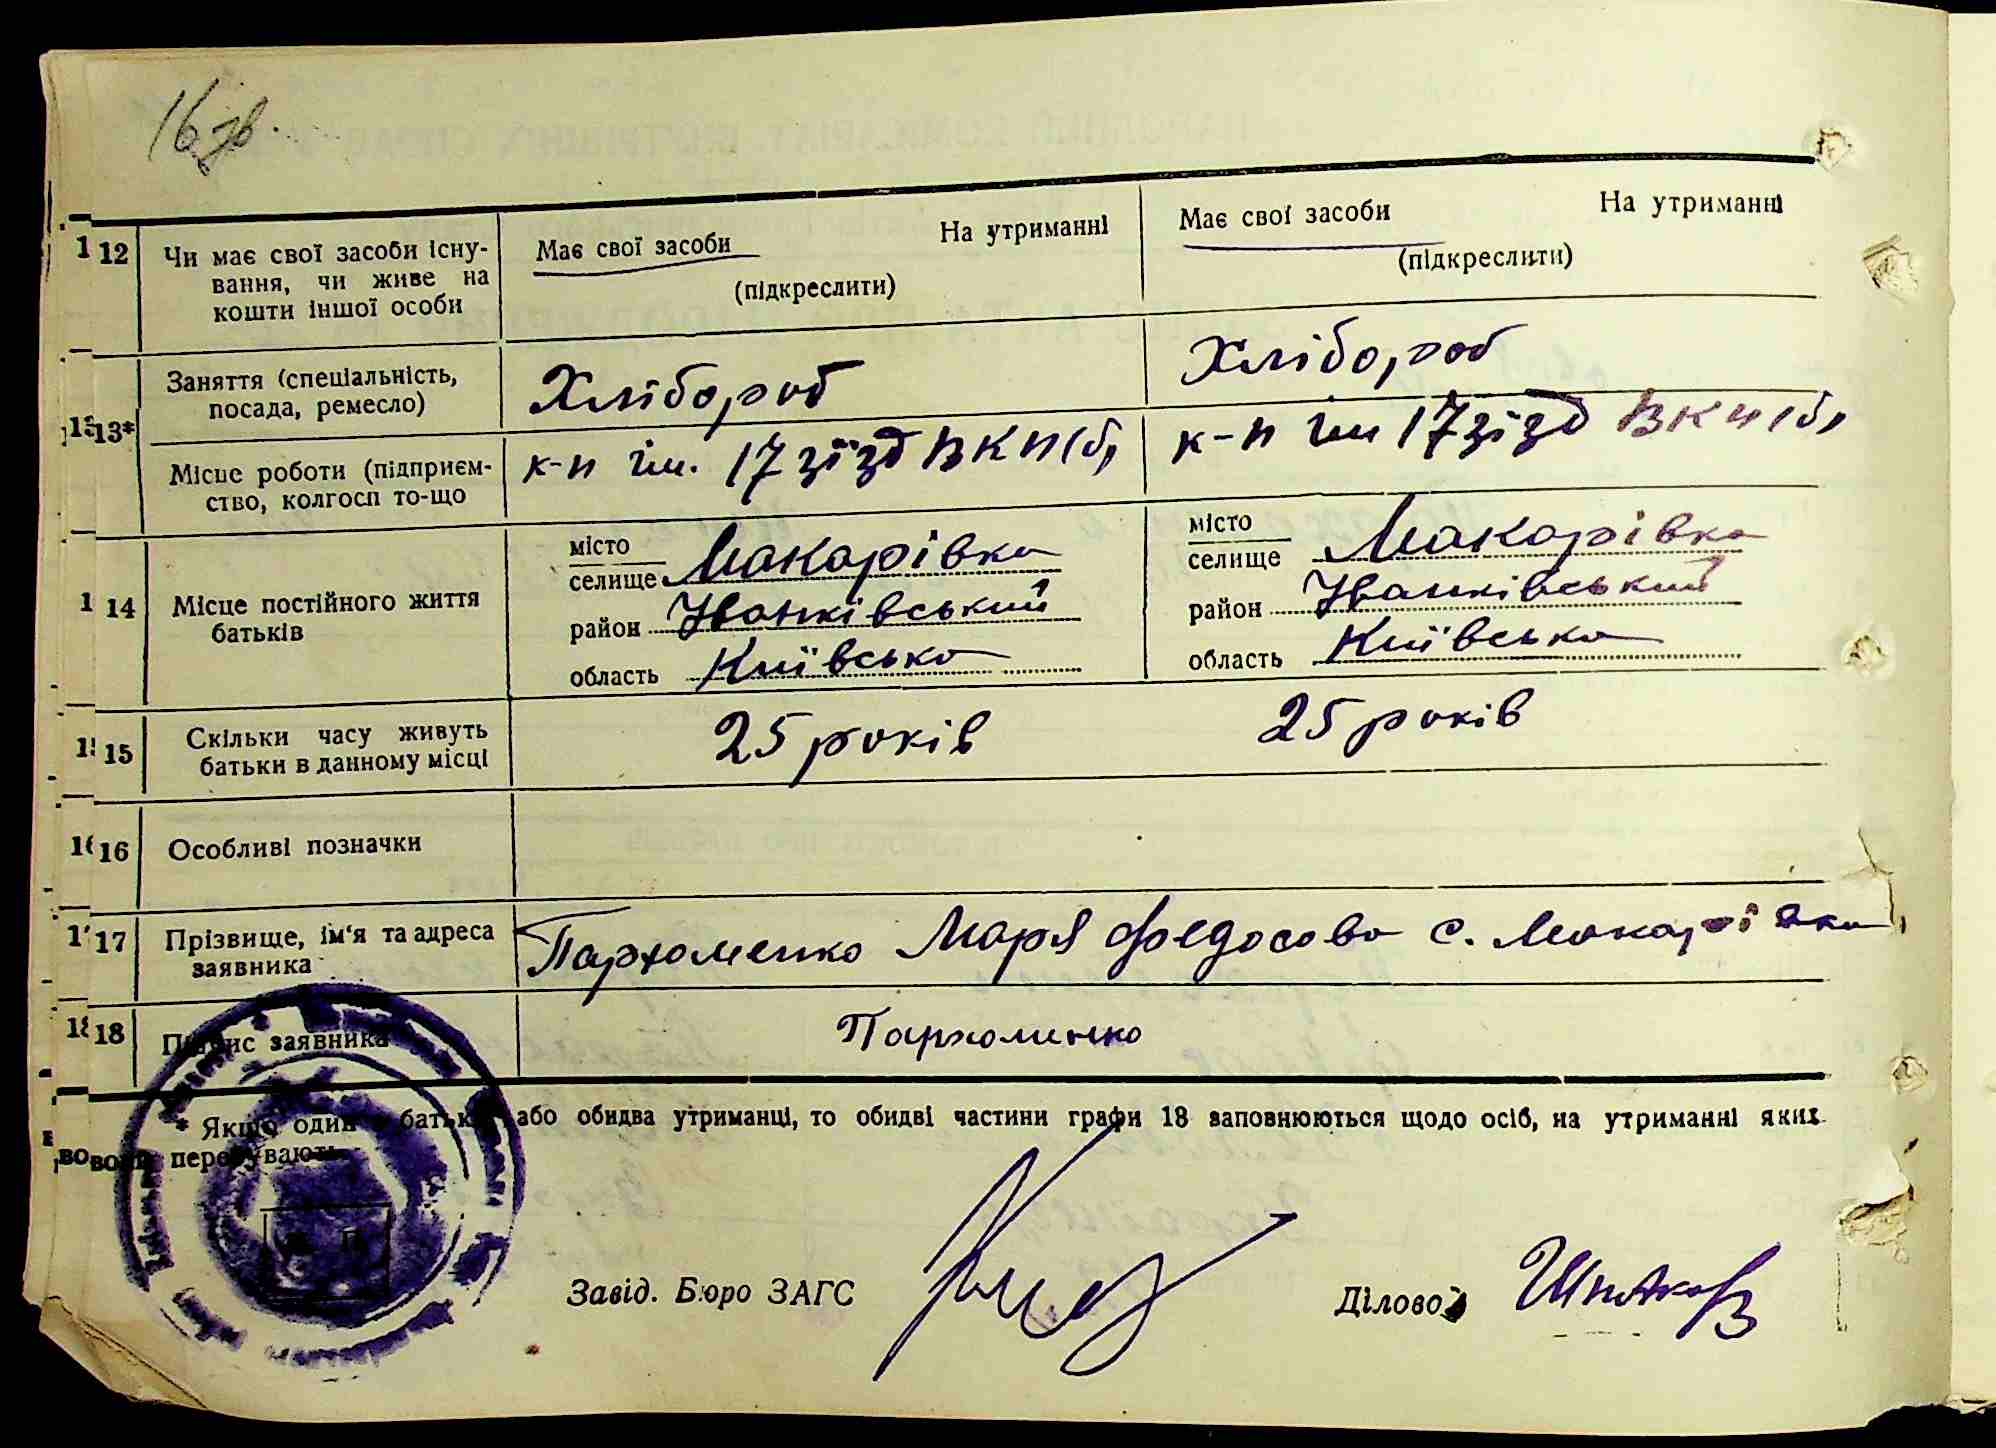 16 зв.
12 Чи має свої засоби існу- Має свої засоби На утриманні Має свої засоби На утриманні
вання, чи живе на (підкреслити) (підкреслити)
кошти іншої особи
Заняття (спеціальність, Хлібороб Хлібороб
посада, ремесло)
13*
Місце роботи (підприєм- к-п ім. 17 зїзд ВКП(б) к-п ім 17 зїзд ВКП(б)
ство, колгосп то-що
місто місто
селище Макарівка селище Макарівка
14 Місце постійного життя район Іванківський район Іванківський
батьків
область Київська область Київська
15 Скільки часу живуть 25 років 25 років
батьки в данному місці
16 Особливі позначки
17 Прізвище, ім'я та адреса Пархоменко Марія Федосова с. Макарівка
заявника
18 Підпис заявника Пархоминко
* Якщо один з батьків або обидва утриманці, то обидві частини графи 18 заповнюються щодо осіб, на утриманні яких
вони перебувають.
Завід. Бюро ЗАГС Діловод